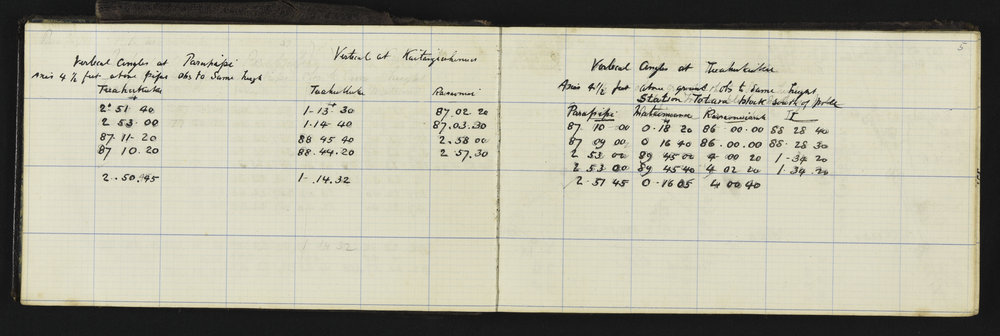 Vertical Angles at Parapipi
Axis 4 ½ feet above pipe obs to same heigh
2° 51 40
2 53 00
87-11-20
87 10.20
2.50.45
Vertical at
1-13 30
1-14 40
88 45 40
88-44.20
1-.14.32
87.02.20
87.03.30
2.58 00
2 57.30
1-14 32
5
Vertical Angles at
Axis 4½ feet above ground obs to same heigh
Station Totara block south of pole
Parapipi II
87 10 00 0.18 20 86.00.00 88 28 40
87 09 00 0 16 40 86.00.00 88.28 30
2 53 00 89 45 00 4 00 20 1-34.20
2 53.00 89 45 40 4 02 20 1.34.20
2 51 45 0.16 05 4 00 40